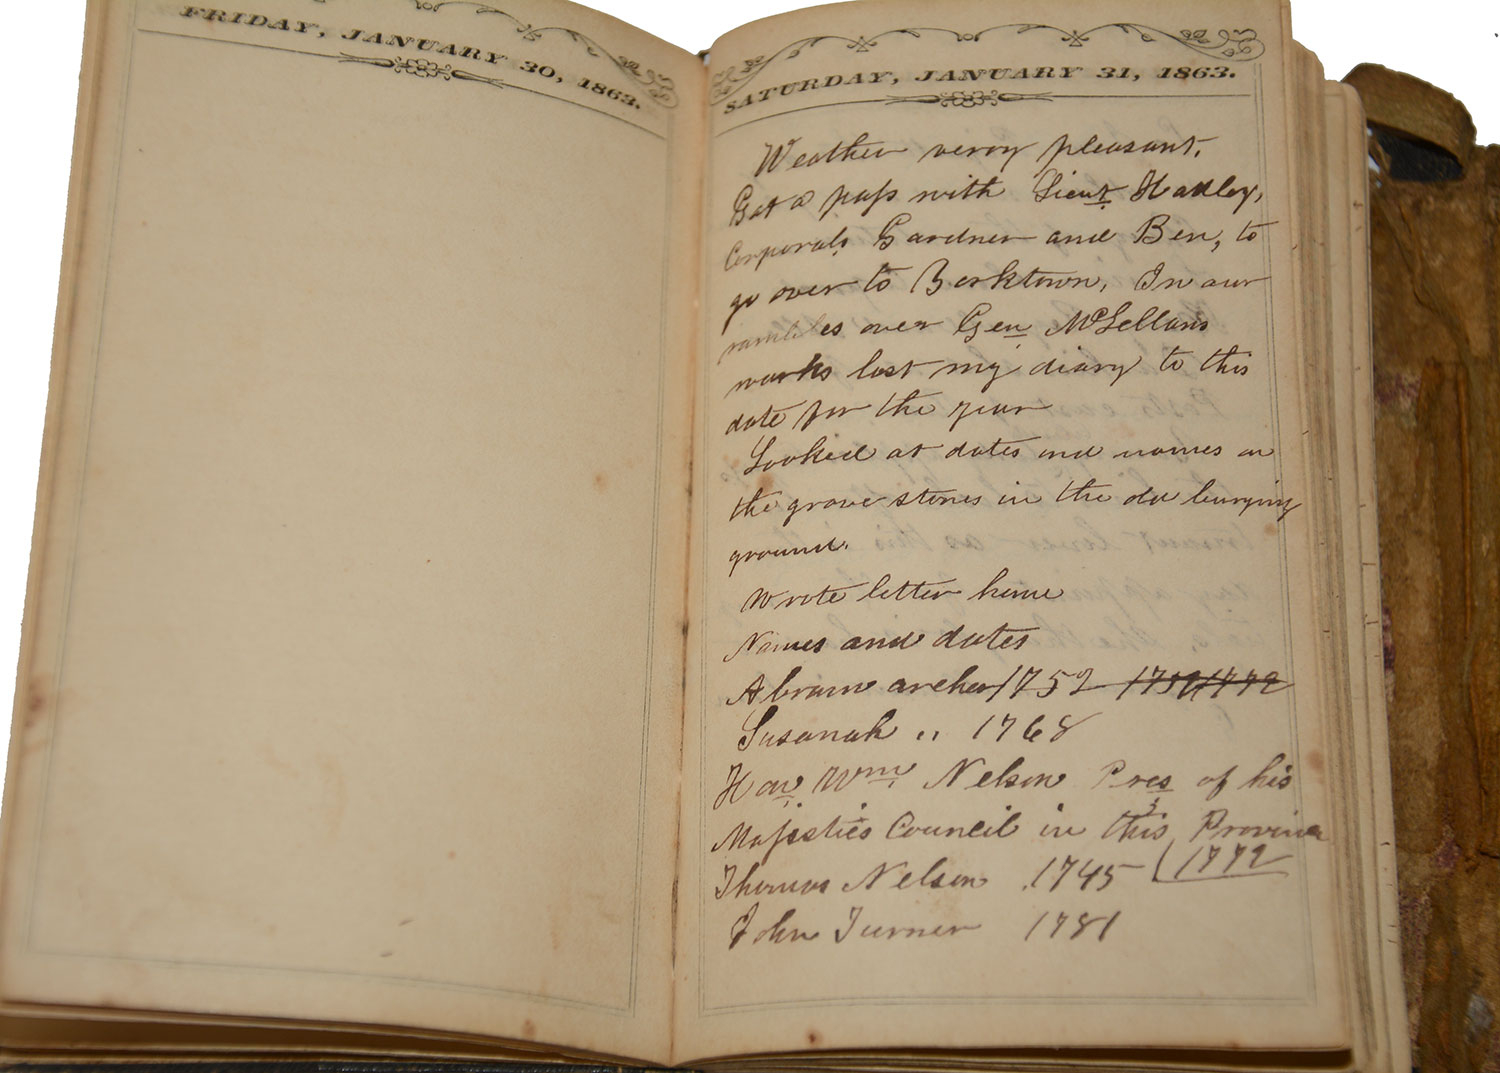 FRIDAY, JANUARY 30, 1863.
SATURDAY, JANUARY 31, 1863.
Weather verry pleasant.
Got a pass with Lieut Hadley,
Corporals Gardner and Ben, to
go over to Yorktown, In our
rambles over Gen McLellans
works lost my diary to this
date for the year
Looked at dates and names on
the grave stones in the old burying
ground.
Wrote letter home
Names and dates
Abram archer 1752
Susanah " 1768
Hon Wm Nelson Pres of his
Majesties Council in this Province
1772
Thomas Nelson 1745
John Turner 1781